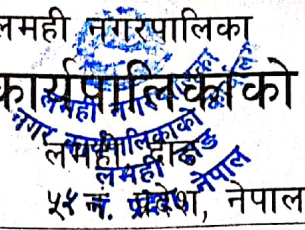 लमही नगरपालिका
कार्यपालिकाको
लमही, दाङ
५ नं. प्रदेश, नेपाल
लमही नगरपालिका
नगर कार्यपालिकाको
लमही
नेपाल